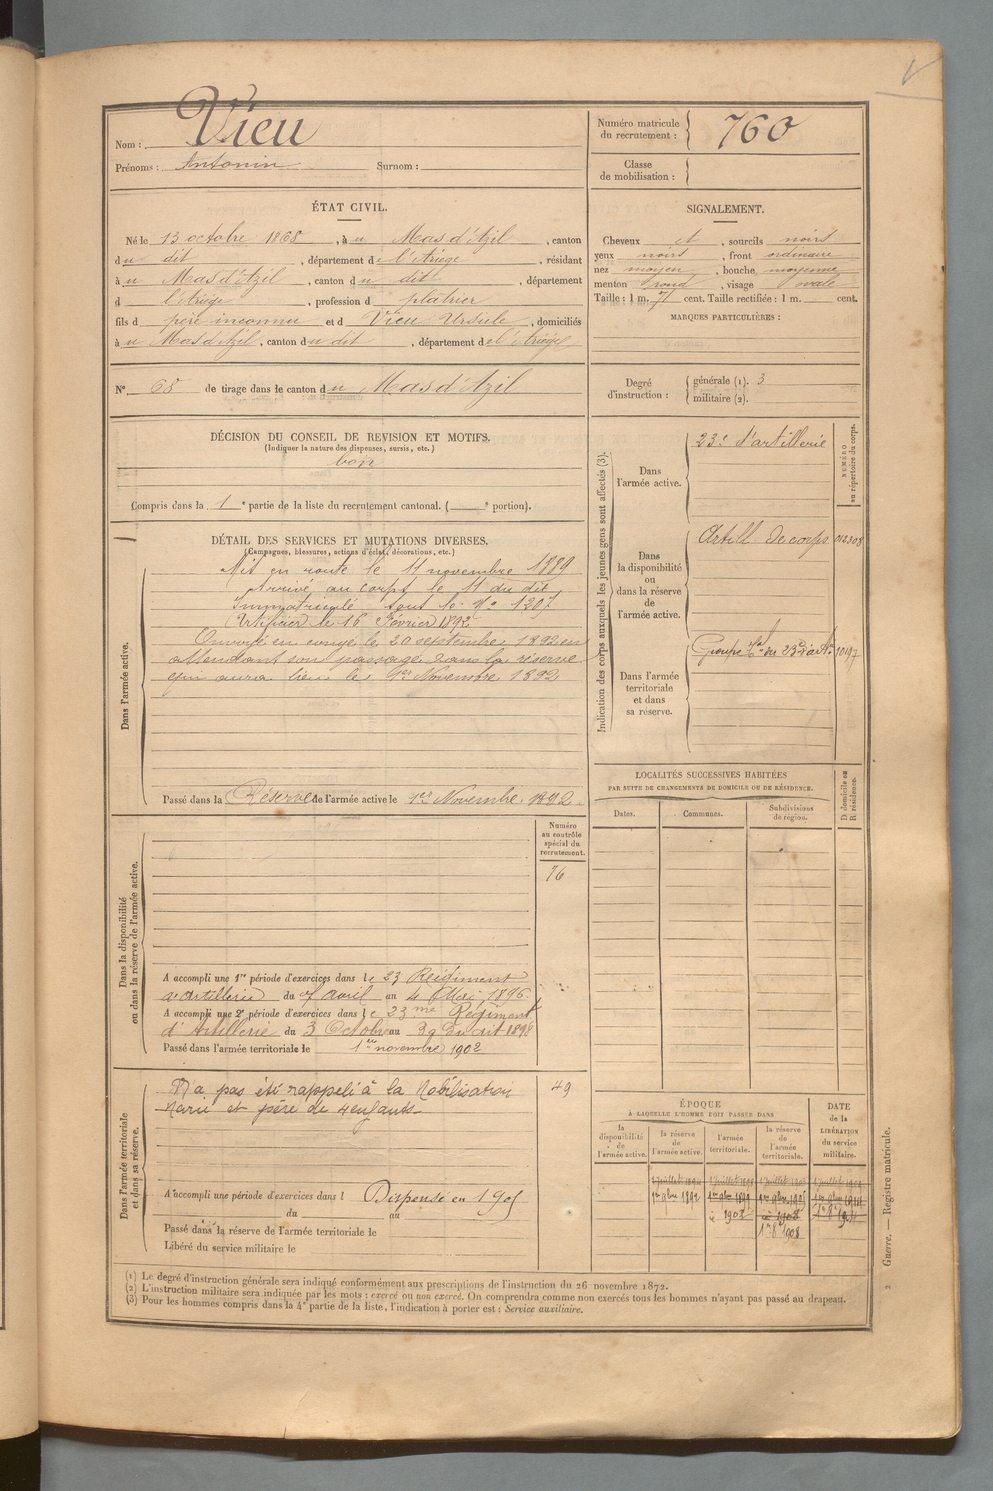 Nom : Vieu
Prénoms : Antonin Surnom :
Numéro matricule du recrutement : 760
Classe de mobilisation :
ÉTAT CIVIL.
Né le 13 octobre 1868, à u Mas d'Azil, canton
du dit, département de l'Ariège, résidant
à u Mas d'Azil, canton du dit, département
d l'Ariège, profession d platrier
fils d père inconnu et d Vieu Ursule, domiciliés
à u Mas d'Azil, canton du dit, département de l'Ariège
SIGNALEMENT.
Cheveux et, sourcils noirs
yeux noirs, front ordinaire
nez moyen, bouche moyenne
menton rond, visage ovale
Taille : 1 m. 71 cent. Taille rectifiée : 1 m. cent.
MARQUES PARTICULIÈRES :
N° 68 de tirage dans le canton du Mas d'Azil
Degré d'instruction : générale (1). 3
militaire (2).
DÉCISION DU CONSEIL DE REVISION ET MOTIFS.
(Indiquer la nature des dispenses, sursis, etc.)
bon
Compris dans la 1e partie de la liste du recrutement cantonal. ( e portion).
DÉTAIL DES SERVICES ET MUTATIONS DIVERSES.
(Campagnes, blessures, actions d'éclat, décorations, etc.)
Dans l'armée active.
Mis en route le 11 novembre 1889
Arrivé au corps le 11 du dit
Immatriculé sous le N° 1207
Artificier le 16 Février 1892
Envoyé en congé le 20 septembre 1892 en
attendant son passage dans la réserve
qui aura lieu le 1er Novembre 1892
Passé dans la Réserve de l'armée active le 1er Novembre 1892
Indication des corps auxquels les jeunes gens sont affectés (3).
NUMÉRO au répertoire du corps.
Dans l'armée active.
23e d'artillerie
Dans la disponibilité ou dans la réserve de l'armée active.
Artill de corps
Dans l'armée territoriale et dans sa réserve.
Groupe du 23e d'art 10197
LOCALITÉS SUCCESSIVES HABITÉES
PAR SUITE DE CHANGEMENTS DE DOMICILE OU DE RÉSIDENCE.
Dates. Communes. Subdivisions de région. D domicile ou R résidence.
Dans la disponibilité ou dans la réserve de l'armée active.
Numéro au contrôle spécial du recrutement.
76
A accompli une 1re période d'exercices dans le 23 Régiment
d'artillerie du 7 avril au 4 Mai 1896
A accompli une 2e période d'exercices dans le 23me Régiment
d'Artillerie du 3 Octobre au 30 du dit 1898
Passé dans l'armée territoriale le 1er novembre 1902
Dans l'armée territoriale et dans sa réserve.
N'a pas été rappelé à la Mobilisation
Marié et père de 4 enfants
49
A accompli une période d'exercices dans l Dispensé en 1905
du au
Passé dans la réserve de l'armée territoriale le
Libéré du service militaire le
ÉPOQUE
À LAQUELLE L'HOMME DOIT PASSER DANS
la disponibilité de l'armée active. la réserve de l'armée active. l'armée territoriale. la réserve de l'armée territoriale.
DATE de la LIBÉRATION du service militaire.
1er 9bre 1892
1908
(1) Le degré d'instruction générale sera indiqué conformément aux prescriptions de l'instruction du 26 novembre 1872.
(2) L'instruction militaire sera indiquée par les mots : exercé ou non exercé. On comprendra comme non exercés tous les hommes n'ayant pas passé au drapeau.
(3) Pour les hommes compris dans la 4e partie de la liste, l'indication à porter est : Service auxiliaire.
2 Guerre. — Registre matricule.